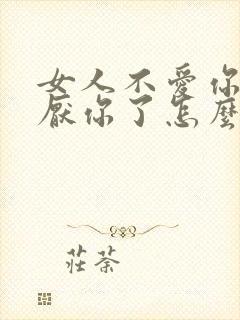 女人不愛你
厭你了怎麼
莊荼